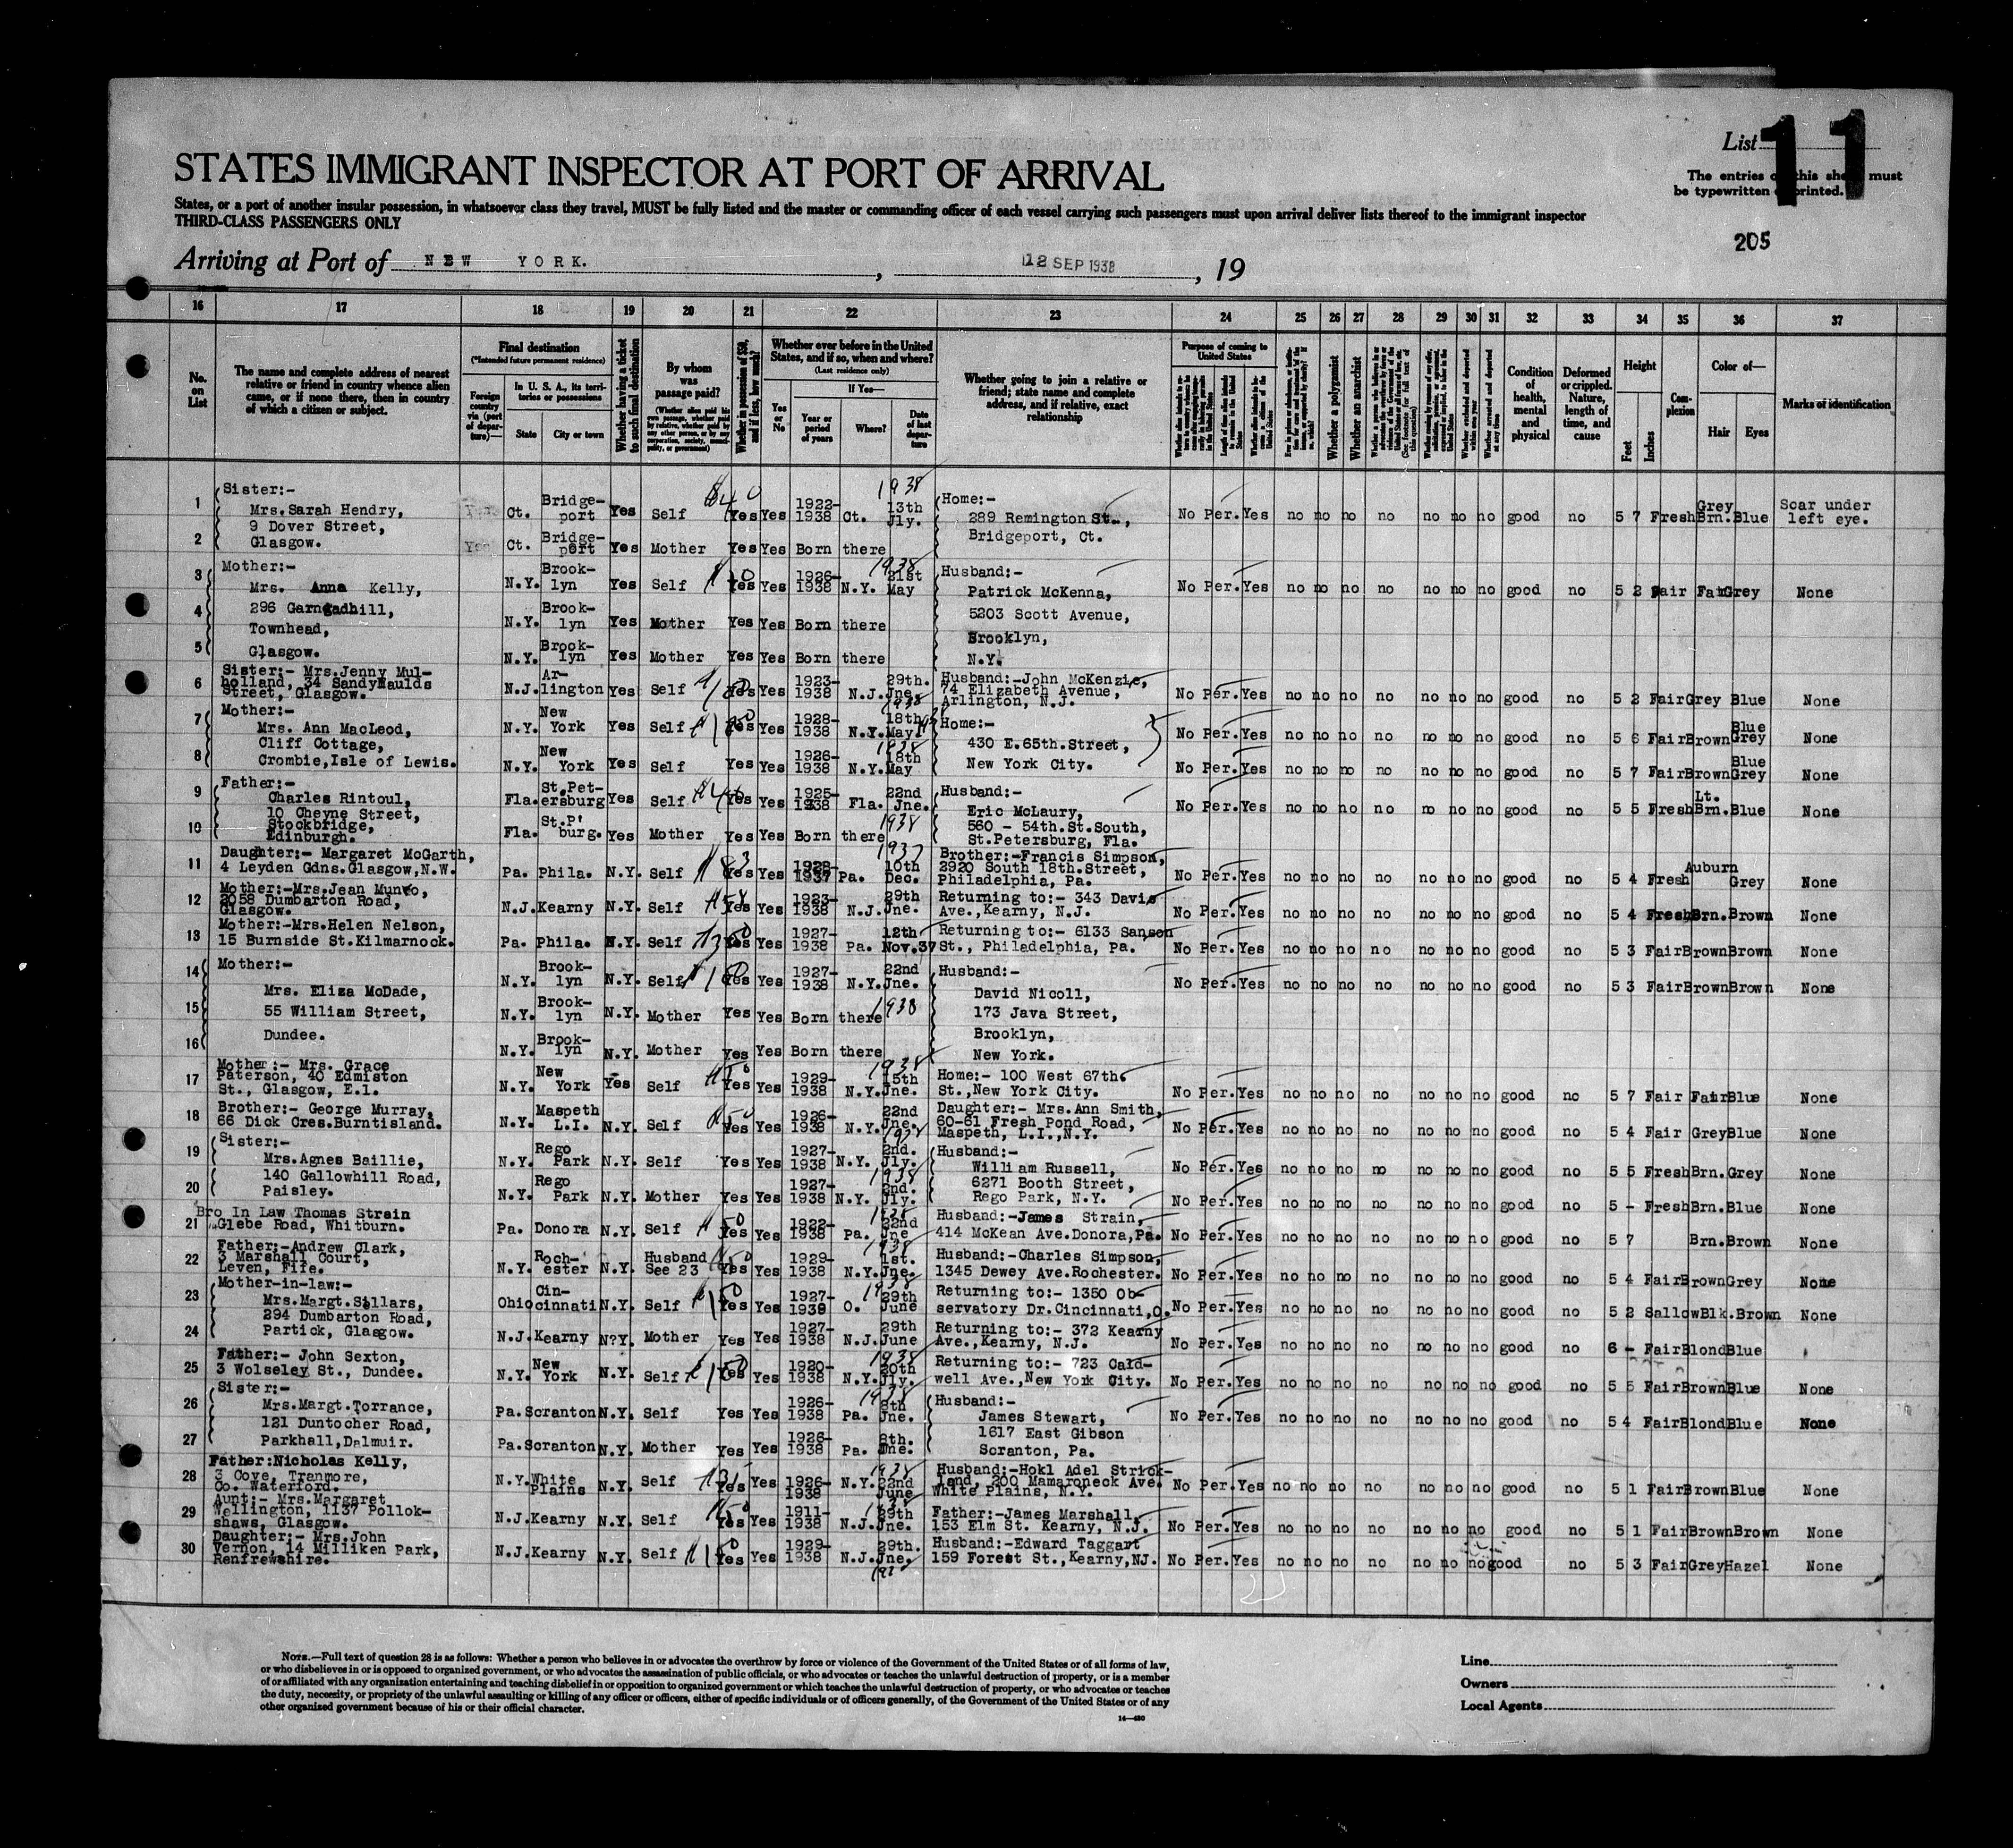 List 11
STATES IMMIGRANT INSPECTOR AT PORT OF ARRIVAL
The entries this must
be typewritten printed.
States, or a port of another insular possession, in whatsoever class they travel, MUST be fully listed and the master or commanding officer of each vessel carrying such passengers must upon arrival deliver lists thereof to the immigrant inspector
THIRD-CLASS PASSENGERS ONLY
205
Arriving at Port of NEW YORK. , 12 SEP 1938 , 19
16 17 18 19 20 21 22 23 24 25 26 27 28 29 30 31 32 33 34 35 36 37
No. on List
The name and complete address of nearest relative or friend in country whence alien came, or if none there, then in country of which a citizen or subject.
Final destination
(*Intended future permanent residence)
Foreign country via (port of departure)—
In U. S. A., its territories or possessions
State
City or town
Whether having a ticket to such final destination
By whom was passage paid?
Whether in possession of $50, and if less, how much?
Whether ever before in the United States, and if so, when and where?
(Last residence only)
Yes or No
If Yes—
Year or period of years
Where?
Date of last departure
Whether going to join a relative or friend; state name and complete address, and if relative, exact relationship
Purpose of coming to United States
Whether a polygamist
Whether an anarchist
Condition of health, mental and physical
Deformed or crippled. Nature, length of time, and cause
Height
Feet
Inches
Complexion
Color of—
Hair
Eyes
Marks of identification
1 Sister:- Mrs.Sarah Hendry, 9 Dover Street, Glasgow. Ct. Bridge-port Yes Self Yes Yes 1922-1938 Ct. 13th Jly. 1938 Home:- 289 Remington St., Bridgeport, Ct. No Per. Yes no no no no no no no good no 5 7 Fresh Grey Brn. Blue Scar under left eye.
2 Ct. Bridge-port Yes Mother Yes Yes Born there
3 Mother:- Mrs. Anna Kelly, 296 Garngadhill, Townhead, Glasgow. N.Y. Brook-lyn Yes Self Yes Yes 1926-1938 N.Y. 21st May 1938 Husband:- Patrick McKenna, 5203 Scott Avenue, Brooklyn, N.Y. No Per. Yes no no no no no no no good no 5 2 Fair Fair Grey None
4 N.Y. Brook-lyn Yes Mother Yes Yes Born there
5 N.Y. Brook-lyn Yes Mother Yes Yes Born there
6 Sister:- Mrs.Jenny Mul-holland, 34 Sandyfaulds Street, Glasgow. N.J. Ar-lington Yes Self Yes Yes 1923-1938 N.J. 29th. Jne. 1938 Husband:-John McKenzie, 74 Elizabeth Avenue, Arlington, N.J. No Per. Yes no no no no no no no good no 5 2 Fair Grey Blue None
7 Mother:- Mrs. Ann MacLeod, Cliff Cottage, Crombie, Isle of Lewis. N.Y. New York Yes Self Yes Yes 1928-1938 N.Y. 18th May. Home:- 430 E.65th.Street, New York City. No Per. Yes no no no no no no no good no 5 6 Fair Brown Blue Grey None
8 N.Y. New York Yes Self Yes Yes 1926-1938 N.Y. 18th May 1938 No Per. Yes no no no no no no no good no 5 7 Fair Brown Blue Grey None
9 Father:- Charles Rintoul, 10 Cheyne Street, Stockbridge, Edinburgh. Fla. St.Pet-ersburg Yes Self Yes Yes 1925-1938 Fla. 22nd Jne. 1938 Husband:- Eric McLaury, 560 - 54th.St.South, St.Petersburg, Fla. No Per. Yes no no no no no no no good no 5 5 Fresh Lt. Brn. Blue None
10 Fla. St.P'burg. Yes Mother Yes Yes Born there
11 Daughter:- Margaret McGarth, 4 Leyden Gdns.Glasgow,N.W. Pa. Phila. N.Y. Self Yes Yes 1928-1937 Pa. 10th Dec. 1937 Brother:-Francis Simpson, 2920 South 18th.Street, Philadelphia, Pa. No Per. Yes no no no no no no no good no 5 4 Fresh Auburn Grey None
12 Mother:-Mrs.Jean Munro, 2058 Dumbarton Road, Glasgow. N.J. Kearny N.Y. Self Yes Yes 1923-1938 N.J. 29th Jne. Returning to:- 343 Davis Ave.,Kearny, N.J. No Per. Yes no no no no no no no good no 5 4 Fresh Brn. Brown None
13 Mother:-Mrs.Helen Nelson, 15 Burnside St.Kilmarnock. Pa. Phila. N.Y. Self Yes Yes 1927-1938 Pa. 12th Nov.37 Returning to:- 6133 Sanson St., Philadelphia, Pa. No Per. Yes no no no no no no no good no 5 3 Fair Brown Brown None
14 Mother:- Mrs. Eliza McDade, 55 William Street, Dundee. N.Y. Brook-lyn N.Y. Self Yes Yes 1927-1938 N.Y. 22nd Jne. 1938 Husband:- David Nicoll, 173 Java Street, Brooklyn, New York. No Per. Yes no no no no no no no good no 5 3 Fair Brown Brown None
15 N.Y. Brook-lyn N.Y. Mother Yes Yes Born there
16 N.Y. Brook-lyn N.Y. Mother Yes Yes Born there
17 Mother:- Mrs. Grace Paterson, 40 Edmiston St., Glasgow, E.1. N.Y. New York Yes Self Yes Yes 1929-1938 N.Y. 15th Jne. 1938 Home:- 100 West 67th. St.,New York City. No Per. Yes no no no no no no no good no 5 7 Fair Fair Blue None
18 Brother:- George Murray, 66 Dick Cres.Burntisland. N.Y. Maspeth L.I. N.Y. Self Yes Yes 1926-1938 N.Y. 22nd Jne. Daughter:- Mrs.Ann Smith, 60-61 Fresh Pond Road, Maspeth, L.I.,N.Y. No Per. Yes no no no no no no no good no 5 4 Fair Grey Blue None
19 Sister:- Mrs.Agnes Baillie, 140 Gallowhill Road, Paisley. N.Y. Rego Park N.Y. Self Yes Yes 1927-1938 N.Y. 2nd. Jly. 1938 Husband:- William Russell, 6271 Booth Street, Rego Park, N.Y. No Per. Yes no no no no no no no good no 5 5 Fresh Brn. Grey None
20 N.Y. Rego Park N.Y. Mother Yes Yes 1927-1938 N.Y. 2nd. Jly. No Per. Yes no no no no no no no good no 5 - Fresh Brn. Blue None
21 Bro In Law Thomas Strain Glebe Road, Whitburn. Pa. Donora N.Y. Self Yes Yes 1922-1938 Pa. 22nd Jne 1938 Husband:-James Strain, 414 McKean Ave.Donora,Pa. No Per. Yes no no no no no no no good no 5 7 Brn. Brown None
22 Father:-Andrew Clark, 3 Marshall Court, Leven, Fife. N.Y. Roch-ester N.Y. Husband See 23 Yes Yes 1929-1938 N.Y. 1st. Jne. 1938 Husband:-Charles Simpson, 1345 Dewey Ave.Rochester. No Per. Yes no no no no no no no good no 5 4 Fair Brown Grey None
23 Mother-in-law:- Mrs.Margt.Sillars, 294 Dumbarton Road, Partick, Glasgow. Ohio Cin-cinnati N.Y. Self Yes Yes 1927-1938 O. 29th June Returning to:- 1350 Ob-servatory Dr.Cincinnati,O. No Per. Yes no no no no no no no good no 5 2 Sallow Blk. Brown None
24 N.J. Kearny N?Y. Mother Yes Yes 1927-1938 N.J. 29th June Returning to:- 372 Kearny Ave.,Kearny, N.J. No Per. Yes no no no no no no no good no 6 - Fair Blond Blue
25 Father:- John Sexton, 3 Wolseley St., Dundee. N.Y. New York N.Y. Self Yes Yes 1920-1938 N.Y. 20th Jly. 1938 Returning to:- 723 Cald-well Ave.,New York City. No Per. Yes no no no no no no no good no 5 5 Fair Brown Blue None
26 Sister:- Mrs.Margt.Torrance, 121 Duntocher Road, Parkhall,Dalmuir. Pa. Scranton N.Y. Self Yes Yes 1926-1938 Pa. 8th Jne. Husband:- James Stewart, 1617 East Gibson Scranton, Pa. No Per. Yes no no no no no no no good no 5 4 Fair Blond Blue None
27 Pa. Scranton N.Y. Mother Yes Yes 1926-1938 Pa. 8th. Jne.
28 Father:Nicholas Kelly, 3 Cove, Tranmore, Co. Waterford. N.Y. White Plains N.Y. Self Yes Yes 1926-1938 N.Y. 22nd June 1938 Husband:-Hokl Adel Strick-land, 200 Mamaroneck Ave. White Plains, N.Y. No Per. Yes no no no no no no no good no 5 1 Fair Brown Blue None
29 Aunt:- Mrs.Margaret Wellington, 1137 Pollok-shaws, Glasgow. N.J. Kearny N.Y. Self Yes Yes 1911-1938 N.J. 29th Jne. Father:-James Marshall, 153 Elm St. Kearny, N.J. No Per. Yes no no no no no no no good no 5 1 Fair Brown Brown None
30 Daughter:- Mrs.John Vernon, 14 Milliken Park, Renfrewshire. N.J. Kearny N.Y. Self Yes Yes 1929-1938 N.J. 29th. Jne. Husband:-Edward Taggart 159 Forest St.,Kearny,NJ. No Per. Yes no no no no no no no good no 5 3 Fair Grey Hazel None
NOTE.—Full text of question 28 is as follows: Whether a person who believes in or advocates the overthrow by force or violence of the Government of the United States or of all forms of law,
or who disbelieves in or is opposed to organized government, or who advocates the assassination of public officials, or who advocates or teaches the unlawful destruction of property, or is a member
of or affiliated with any organization entertaining and teaching disbelief in or opposition to organized government or which teaches the unlawful destruction of property, or who advocates or teaches
the duty, necessity, or propriety of the unlawful assaulting or killing of any officer or officers, either of specific individuals or of officers generally, of the Government of the United States or of any
other organized government because of his or their official character.
14—430
Line
Owners
Local Agents